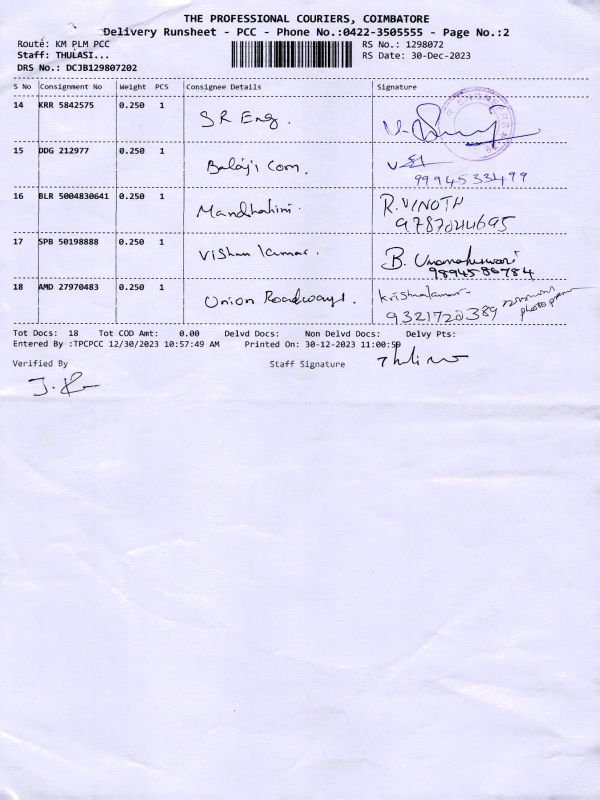 THE PROFESSIONAL COURIERS, COIMBATORE
Delivery Runsheet - PCC - Phone No.:0422-3505555 - Page No.:2
Route: KM PLM PCC
RS No.: 1298072
Staff: THULASI...
RS Date: 30-Dec-2023
DRS No.: DCJB129807202
S No Consignment No Weight PCS Consignee Details Signature
14 KRR 5842575 0.250 1 SR Eng.
15 DDG 212977 0.250 1 Balaji Com.
9994533499
16 BLR 5004830641 0.250 1 Mandhahini. R. VINOTH
9787044695
17 SPB 50198888 0.250 1 Vishnu Kumar. B. Umamaheswari
9894586784
18 AMD 27970483 0.250 1 Union Roadways. Krishnakumar
9321720389
Tot Docs: 18 Tot COD Amt: 0.00 Delvd Docs: Non Delvd Docs: Delvy Pts:
Entered By :TPCPCC 12/30/2023 10:57:49 AM Printed On: 30-12-2023 11:00:59
Verified By Staff Signature